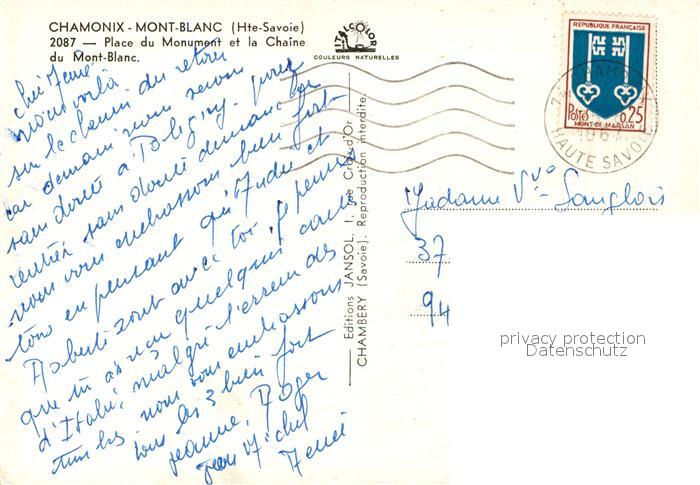 CHAMONIX - MONT-BLANC (Hte-Savoie)
2087 — Place du Monument et la Chaîne
du Mont-Blanc.
ITALCOLOR
COULEURS NATURELLES
REPUBLIQUE FRANÇAISE
POSTES 0,25
MONT-DE-MARSAN
CHAMONIX
HAUTE SAVOIE
nous voilà du retour
sur le chemin
car demain nous serons
sans doute à Poligny
rentrés sans doute dimanche
nous vous embrassons bien fort
tous en pensant qu'André et
sont avec toi je pense
que tu as quelques cartes
d'Italie, malgré l'erreur des
timbres nous vous embrassons
tous les 3 bien fort
Jeanne, Roger
Michel
Madame Vve Langlois
37
94
Editions JANSOL, 1, rue Croix-d'Or
CHAMBERY (Savoie). Reproduction interdite.
privacy protection
Datenschutz